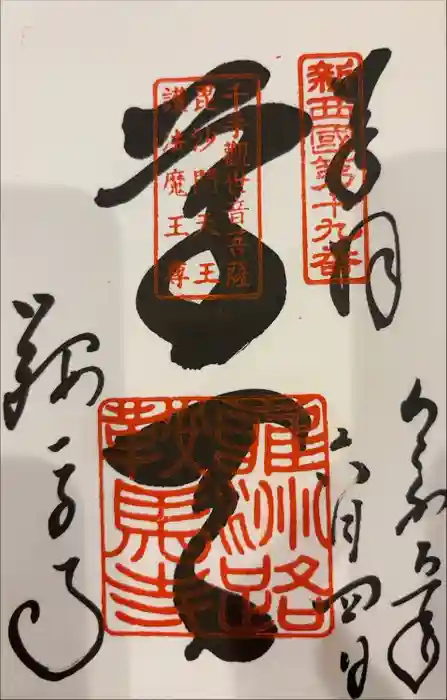 奉拝
新西國第十九番
尊天
千手觀世音菩薩
毘沙門天王
護法魔王尊
雍州路
鞍馬寺
令和
年
六月四日
鞍馬寺